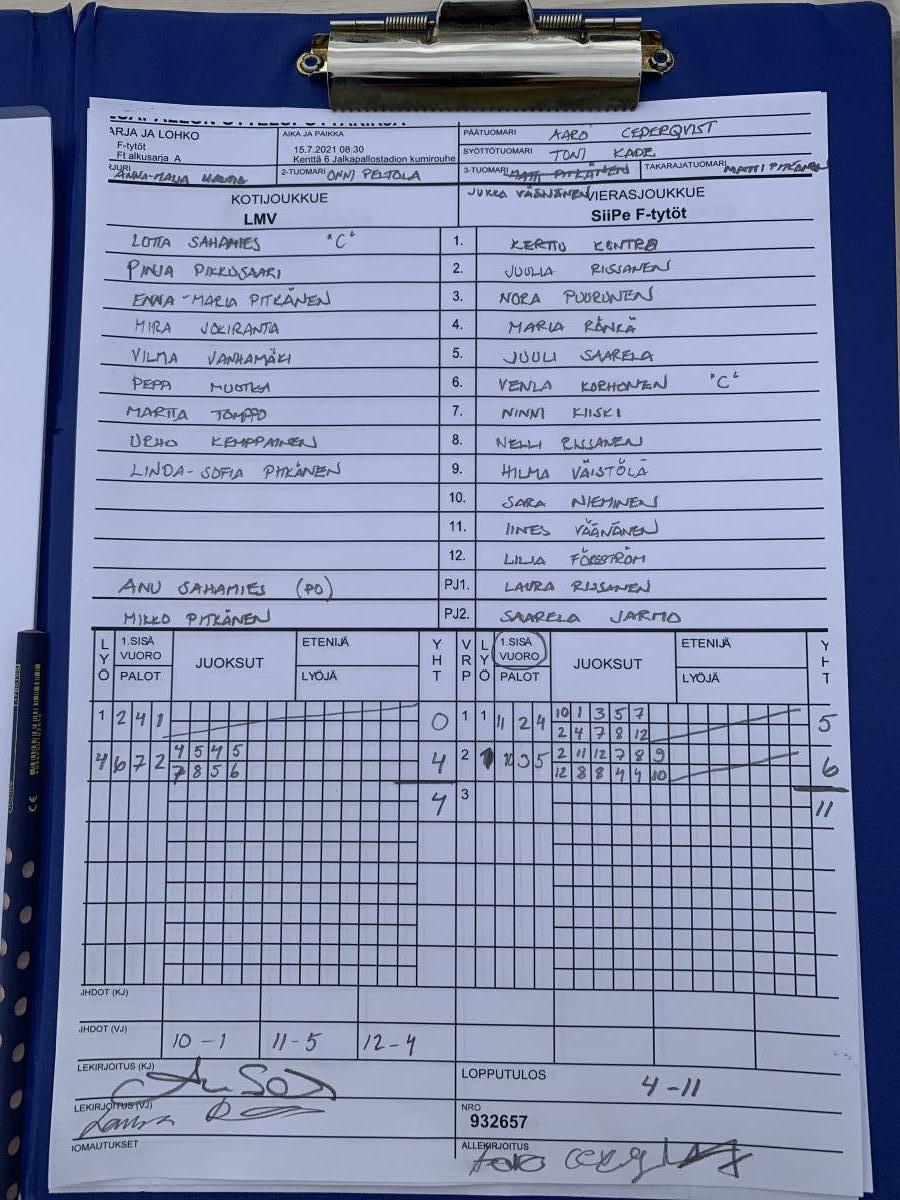 ARJA JA LOHKO
F-tytöt
Ft alkusarja A
AIKA JA PAIKKA
15.7.2021 08:30
Kenttä 6 Jalkapallostadion kumirouhe
PÄÄTUOMARI AARO CEDERQVIST
SYÖTTÖTUOMARI TONI KADE
JURI ANNA-MAIJA
2-TUOMARI ONNI PELTOLA
3-TUOMARI MATTI PITKÄNEN
TAKARAJATUOMARI MATTI PITKÄNEN
JUKKA VÄÄNÄNEN
KOTIJOUKKUE
LMV
VIERASJOUKKUE
SiiPe F-tytöt
LOTTA SAHAMIES "C" 1. KERTTU KONTRO
PINJA PIKKUSAARI 2. JUULIA RISSANEN
ENNA-MARIA PITKÄNEN 3. NORA PUURUNEN
MIRA JOKIRANTA 4. MARIA RÖNKÄ
VILMA VANHAMÄKI 5. JUULI SAARELA
PEPPA MUOTKA 6. VENLA KORHONEN "C"
MARTTA TOMPPO 7. NINNI KIISKI
URHO KEMPPAINEN 8. NELLI RISSANEN
LINDA-SOFIA PITKÄNEN 9. HILMA VÄISTÖLÄ
10. SARA NIEMINEN
11. IINES VÄÄNÄNEN
12. LILJA FORSSTRÖM
ANU SAHAMIES (PO) PJ1. LAURA RISSANEN
MIKKO PITKÄNEN PJ2. SAARELA JARMO
LYÖ 1.SISÄ VUORO PALOT JUOKSUT ETENIJÄ LYÖJÄ YHT VRP LYÖ 1.SISÄ VUORO PALOT JUOKSUT ETENIJÄ LYÖJÄ YHT
1 2 4 1 0 1 1 11 2 4 10 1 3 5 7 5
2 4 7 8 12
4 6 7 2 4 5 4 5 4 2 1 10 3 5 2 11 12 7 8 9 6
7 8 5 6 12 8 8 4 4 10
4 3 11
JHDOT (KJ)
JHDOT (VJ) 10-1 11-5 12-4
LEKIRJOITUS (KJ)
LOPPUTULOS 4-11
LEKIRJOITUS (VJ) Laura
NRO
932657
IOMAUTUKSET
ALLEKIRJOITUS